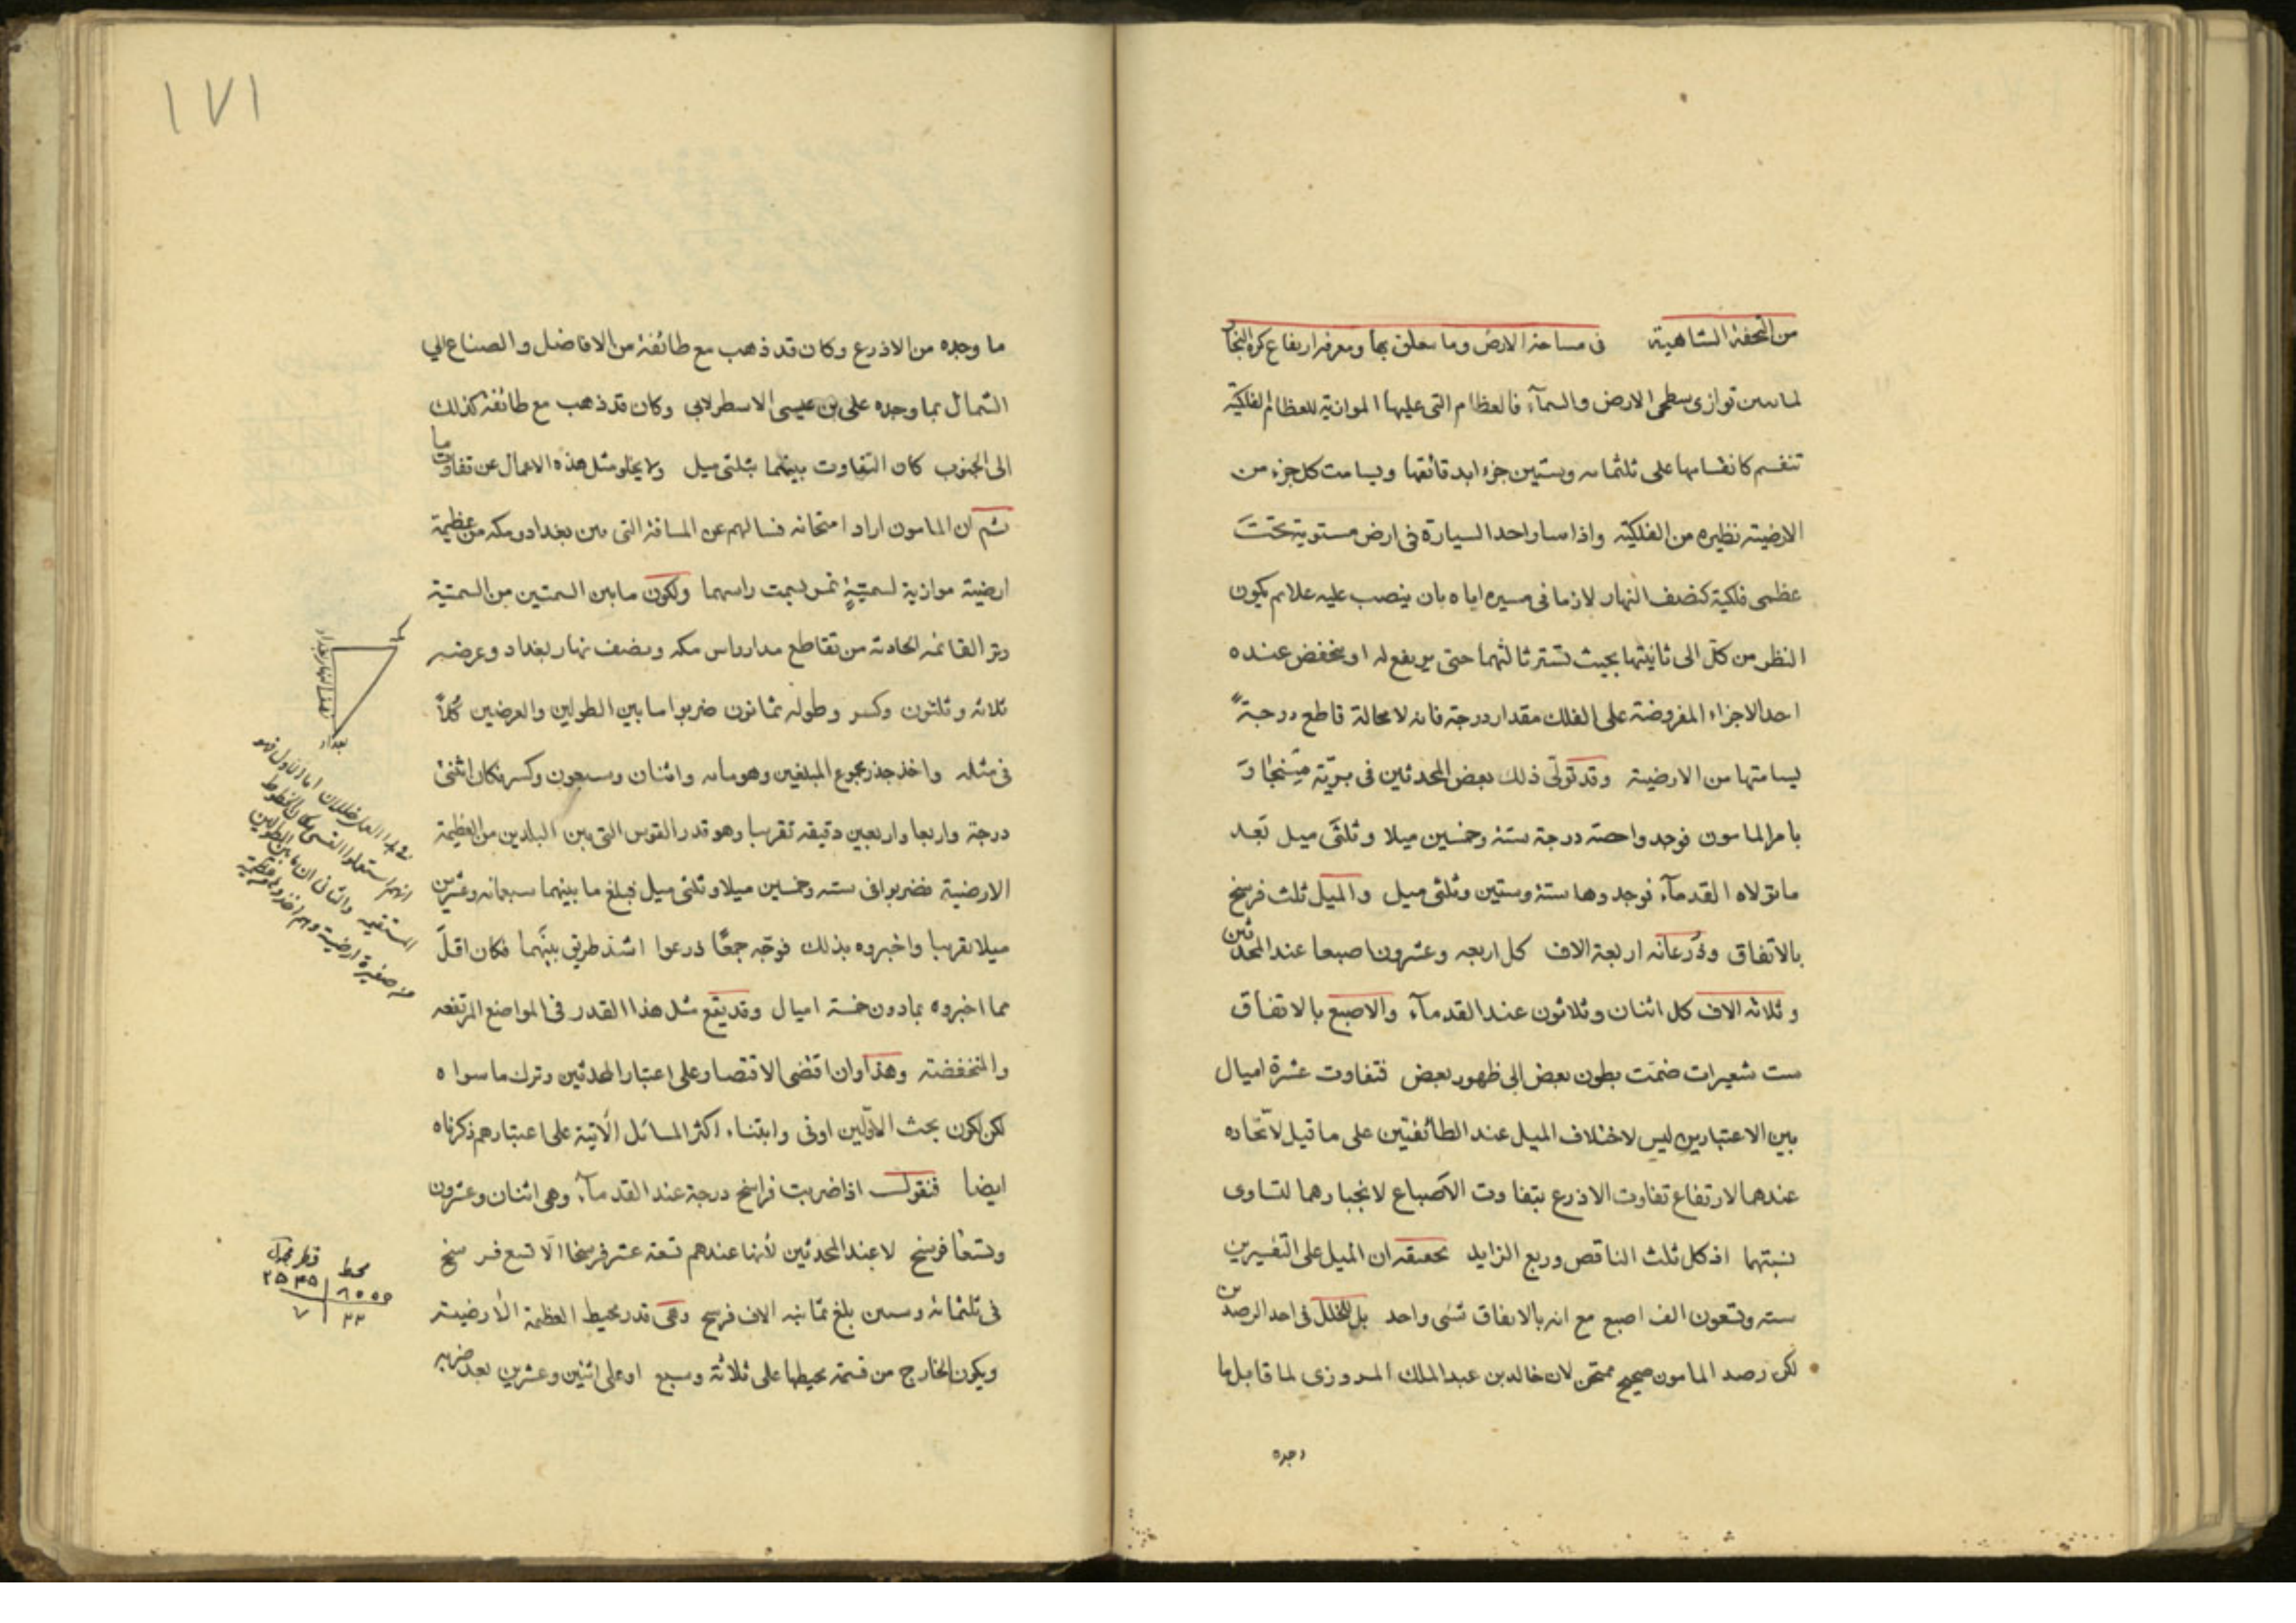 من التحفة الشاهية فى مساحة الارض وما يتعلق بها ومعرفة ارتفاع كرة البخار
لما تبين توازى سطحى الارض والسمآء فالعظام التى عليها الموازية للعظام الفلكية
تنقسم كانقسامها على ثلثمائه وستين جزء ابدقائقها ويسامت كل جزء من
الارضية نظيره من الفلكية واذا سار احد السيارة فى ارض مستوية تحت
عظمى فلكية كنصف النهار لازما فى مسيره اياه بان ينصب عليه علايم يكون
النظر من كل الى ثانيتها بحيث تستر ثالثتهما حتى يرتفع له او ينخفض عنده
احد الاجزاء المفروضة على الفلك مقدار درجة فانه لا محالة قاطع درجةً
يسامتها من الارضية وقد تولى ذلك بعض المحدثين فى بريّة سنجار
بامر المامون فوجد واحصة درجة ستة وخمسين ميلا وثلثى ميل بَعد
ما تولاه القدمآء فوجدوها ستة وستين وثلثى ميل والميل ثلث فرسخ
بالاتفاق وذرعانه اربعة الاف كل اربعه وعشرون اصبعا عند المحدثين
وثلاثه الاف كل اثنان وثلاثون عند القدمآء والاصبع بالاتفاق
ست شعيرات ضمّت بطون بعض الى ظهور بعض فتفاوت عشرة اميال
بين الاعتبارين ليس لاختلاف الميل عند الطائفتين على ما قيل لاتّحاده
عندهما لارتفاع تفاوت الاذرع بتفاوت الاصباع لانجبارهما لتساوى
نسبتهما اذ كل ثلث الناقص وربع الزايد تحقيقه ان الميل على التفسيرين
سته وتسعون الف اصبع مع انه بالاتفاق شى واحد بل لخلل فى احد الرصدين
لكن رصد المامون صحيح ممتحن لان خالد بن عبد الملك المروزى لما قابل ما
وجده
١٧١
ما وجده من الاذرع وكان قد ذهب مع طائفة من الافاضل والصناع الى
الشمال بما وجده على بن عيسى الاسطرلابى وكان قد ذهب مع طائفة كذلك
الى الجنوب كان التفاوت بينهما بثلثى ميل ولا يخلو مثل هذه الاعمال عن تفاوت ما
ثم ان المامون اراد امتحانه فسالهم عن المسافة التى بين بغداد ومكه من عظيمة
ارضية موازية لسمتيّةٍ تمر بسمت راسهما ولكون ما بين السمتين من السمتية
وتر القائمة الحادثة من تقاطع مدار راس مكه ونصف نهار بغداد وعرضه
ثلاثه وثلثون وكسر وطوله ثمانون ضربوا ما بين الطولين والعرضين كُلاً
فى مثله واخذ جذر مجموع المبلغين وهو مائه واثنان وسبعون وكسر فكان اثنتى
درجة واربعا واربعين دقيقه تقريبا وهو قدر القوس التى بين البلدين من العظيمة
الارضية فضربوا فى سته وخمسين ميلا وثلثى ميل فبلغ ما بينهما سبعمائه وعشرين
ميلا تقريبا واخبروه بذلك فوجّه جمعًا ذرعوا اشدّ طريق بينهما فكان اقلّ
مما اخبروه بمادون خمسة اميال وقد يقع مثل هذا القدر فى المواضع المرتفعه
والمنخفضة وهذا وان اقتضى الاقتصار على اعتبار المحدثين وترك ما سواه
لكن لكون بحث الاوّلين اوفى وابتناء اكثر المسائل الآتية على اعتبارهم ذكرناه
ايضا فنقول اذا ضربت فراسخ درجة عند القدمآء وهى اثنان وعشرون
وتسعا فرسخ لا عند المحدثين لأنها عندهم تسعة عشر فرسخا الّا تسع فرسخ
فى ثلثمائة وستين بلغ ثمانيه الاف فرسخ وهى قدر محيط العظيمة الارضيته
ويكون الخارج من قسمة محيطها على ثلاثة وسبع او على اثنين وعشرين بعد ضربه
مكه
نصف نهار بغداد
بغداد
المستقيمه والثانى ان ما بين الطولين
محيط قطر
٨٠٠٠ ٢٥٤٥
٢٢ ٧